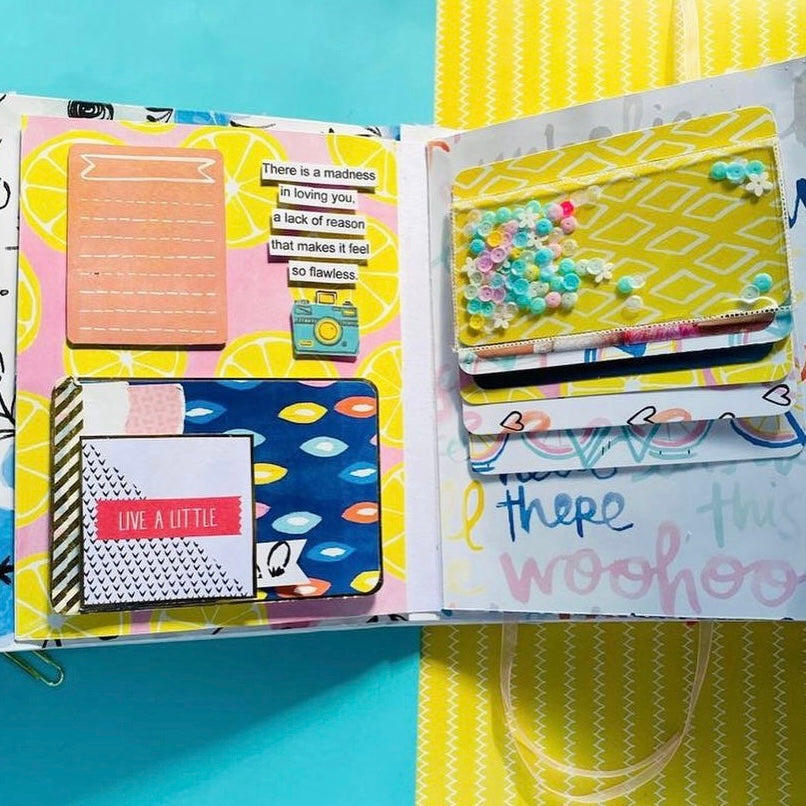 There is a madness
in loving you,
a lack of reason
that makes it feel
so flawless.
LIVE A LITTLE
there this
woohoo